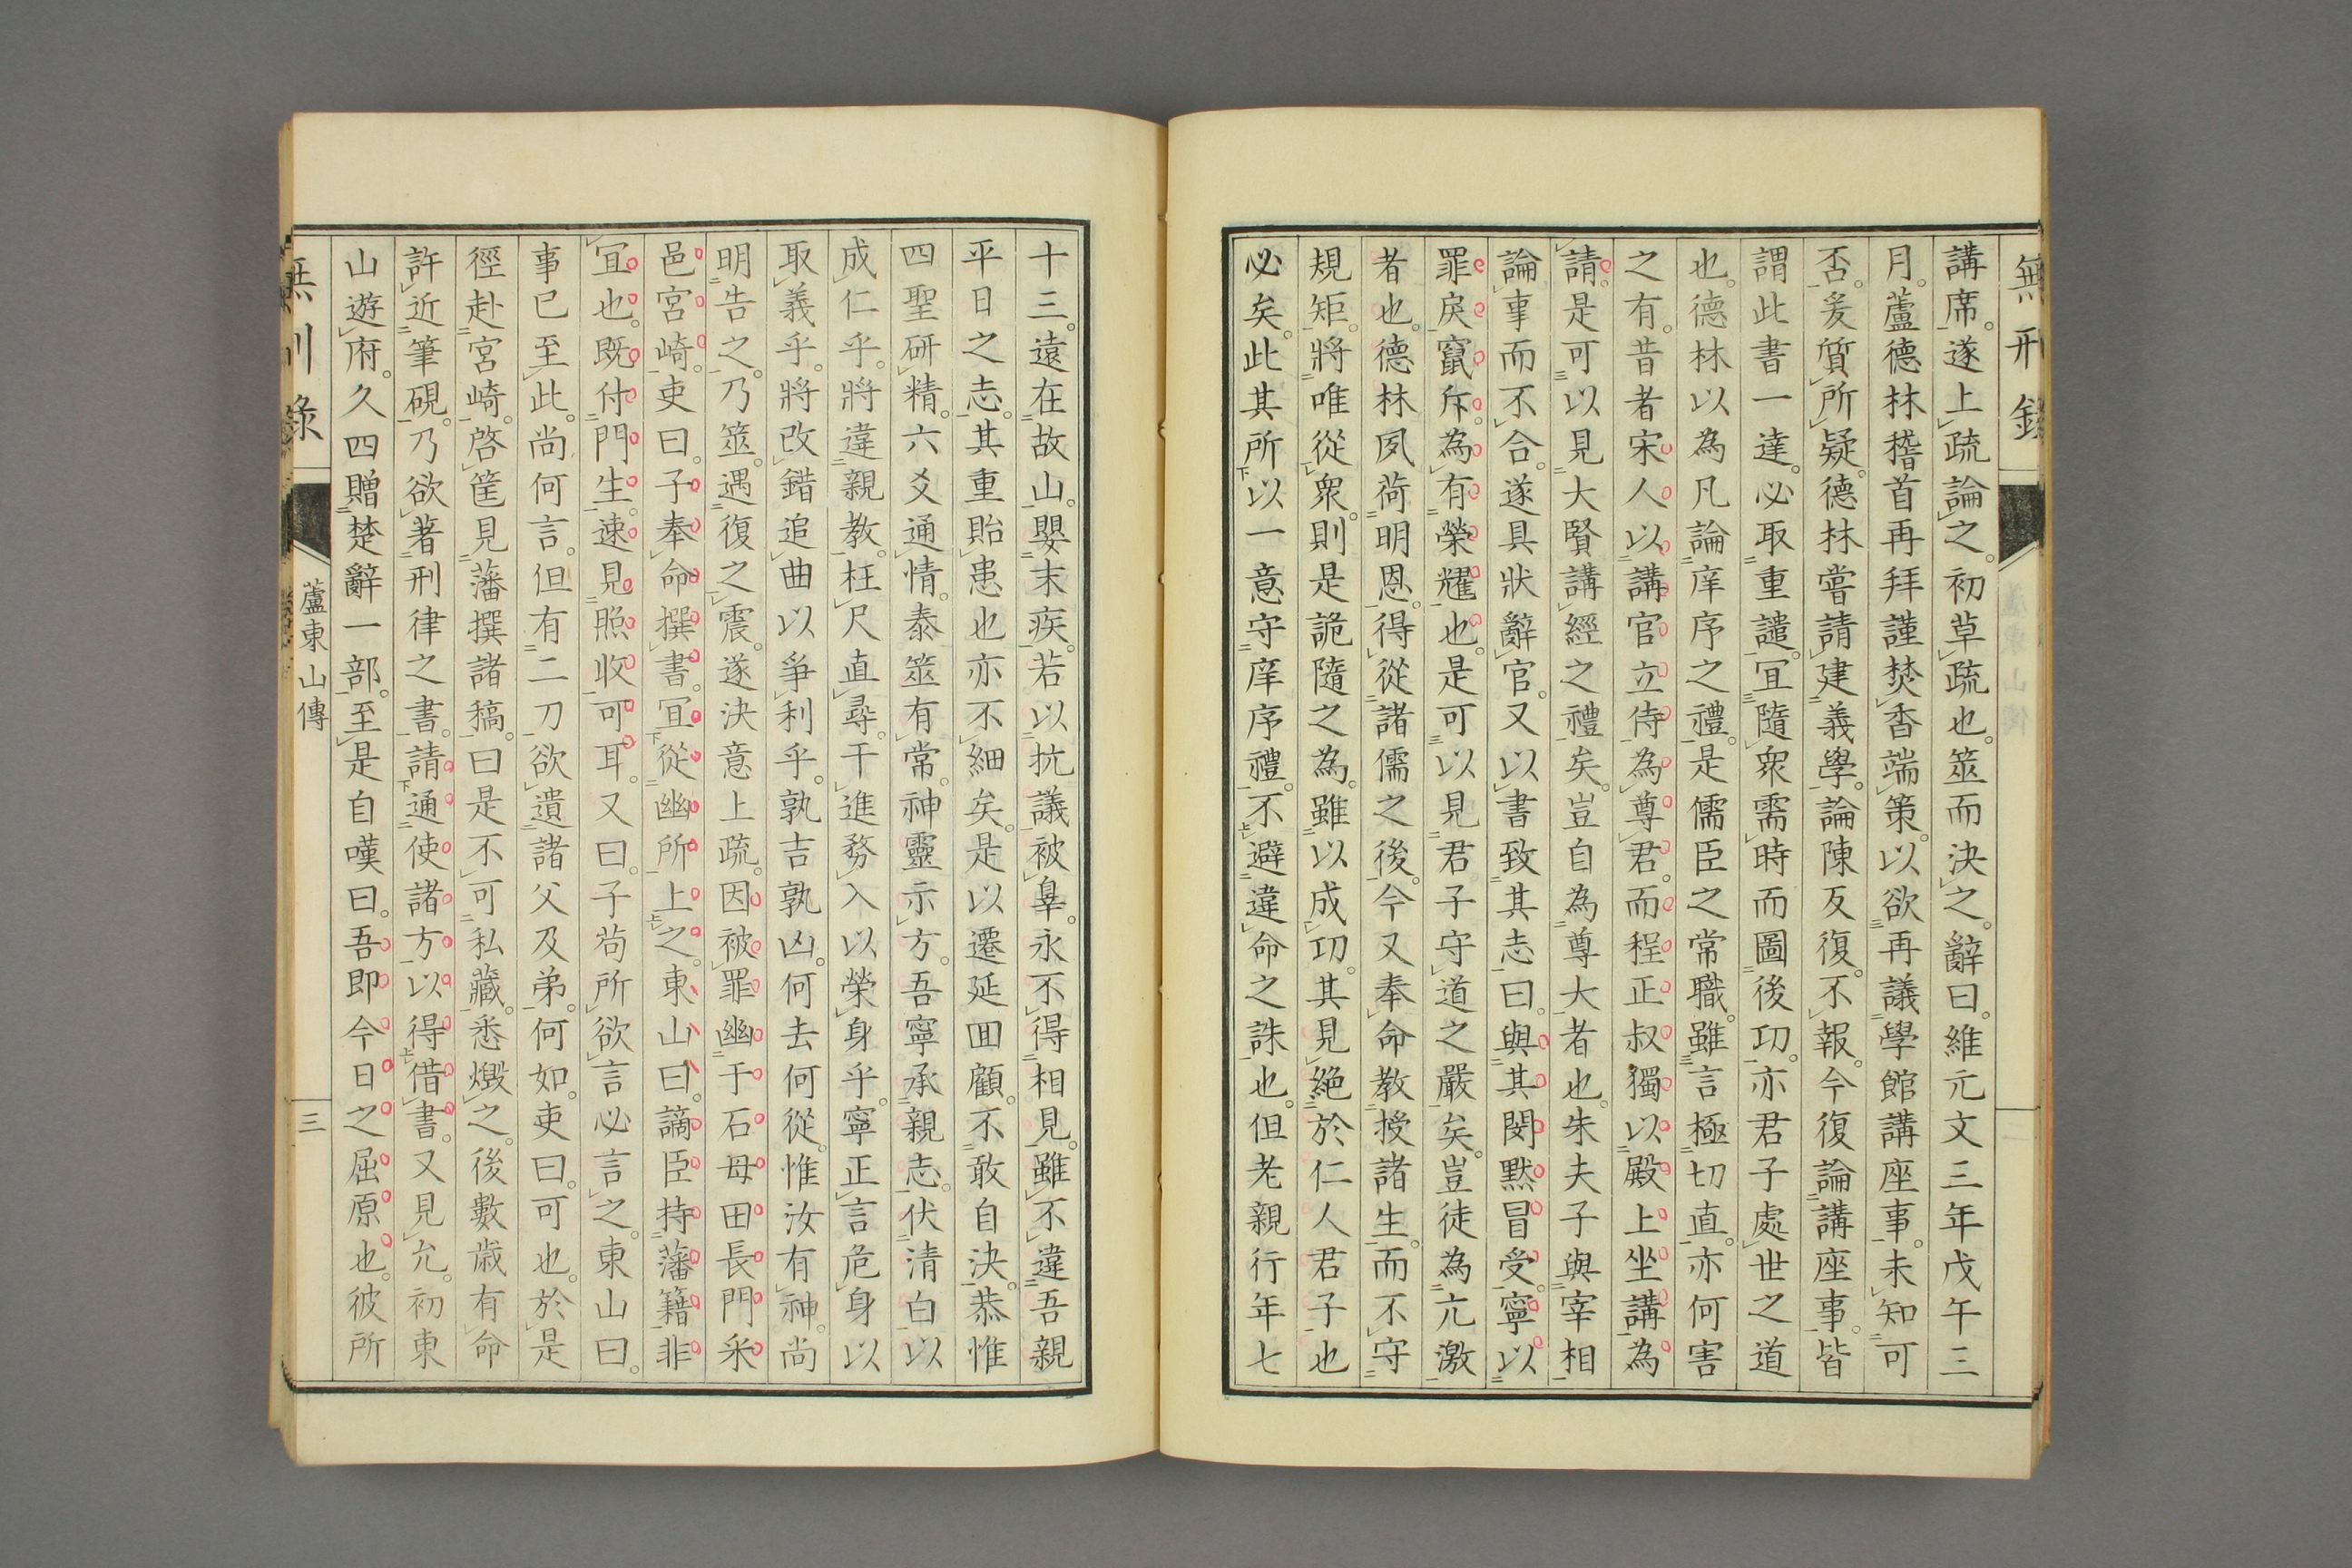 無刑錄
講席。遂上疏論之。初草疏也。筮而決之。辭曰。維元文三年戊午三
月。蘆德林稽首再拜謹焚香端策。以欲再議學館講座事。未知可
否。爰質所疑。德林嘗請建義學。論陳反復。不報。今復論講座事。皆
謂此書一達。必取重譴。宜隨衆需時而圖後功。亦君子處世之道
也。德林以為凡論庠序之禮。是儒臣之常職。雖言極切直。亦何害
之有。昔者宋人以講官立侍為尊君。而程正叔獨以殿上坐講為
請。是可以見大賢講經之禮矣。豈自為尊大者也。朱夫子與宰相
論事而不合。遂具狀辭官。又以書致其志曰。與其閔默冒受。寧以
罪戾竄斥。為有榮耀也。是可以見君子守道之嚴矣。豈徒為亢激
者也。德林夙荷明恩。得從諸儒之後。今又奉命教授諸生。而不守
規矩。將唯從衆。則是詭隨之為。雖以成功。其見絕於仁人君子也
必矣。此其所以一意守庠序禮。不避違命之誅也。但老親行年七
十三。遠在故山。嬰末疾。若以抗議被辠。永不得相見。雖不違吾親
平日之志。其重貽患也亦不細矣。是以遷延囬顧。不敢自決。恭惟
四聖研精。六爻通情。泰筮有常。神靈示方。吾寧承親志。伏清白以
成仁乎。將違親教。枉尺直尋。干進務入以榮身乎。寧正言危身以
取義乎。將改錯追曲以爭利乎。孰吉孰凶。何去何從。惟汝有神。尚
明告之。乃筮。遇復之震。遂決意上疏。因被罪幽于石母田長門采
邑宮崎。吏曰。子奉命撰書。宜從幽所上之。東山曰。謫臣持藩籍非
宜也。既付門生。速見照收可耳。又曰。子苟所欲言必言之。東山曰。
事已至此。尚何言。但有二刀欲遺諸父及弟。何如。吏曰。可也。於是
徑赴宮崎。啓筐見藩撰諸稿。曰是不可私藏。悉燬之。後數歲有命
許近筆硯。乃欲著刑律之書。請通使諸方。以得借書。又見允。初東
山遊府。久四贈楚辭一部。至是自嘆曰。吾即今日之屈原也。彼所
蘆東山傳
三